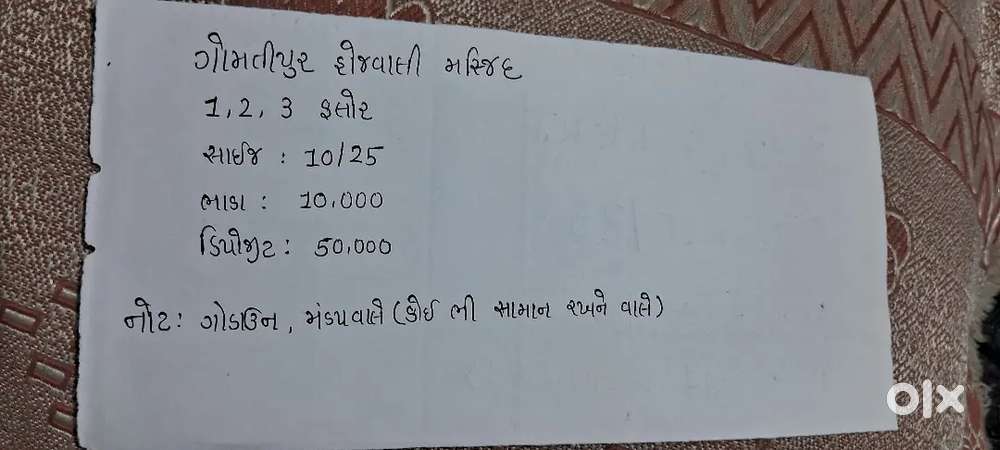 ગોમતીપુર ફોજવાલી મસ્જિદ
1, 2, 3 ફ્લોર
સાઈજ : 10/25
ભાડા : 10,000
ડિપોજીટ : 50,000
નોટ : ગોડાઉન, મંડપવાલે (કોઈ ભી સામાન રખને વાલે)
olx